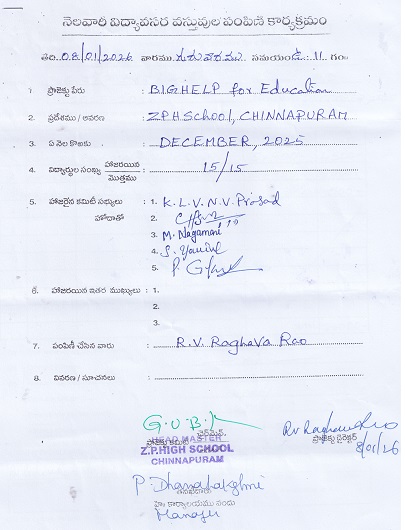 నెలవారి విద్యావసర వస్తువుల పంపిణి కార్యక్రమం
తేది: 08/01/2026 వారము గురువారము సమయం: 11 గం
1 ప్రాజెక్టు పేరు : BIGHELP for Education
2. ప్రదేశము / ఆవరణ : ZPHSchool, CHINNAPURAM
3. ఏ నెల కొఱకు : DECEMBER, 2025
4. విద్యార్థుల సంఖ్య హాజరయిన / మొత్తము : 15/15
5. హాజరైన కమిటీ సభ్యులు : 1. K.L.V.N.V. Prasad
హోదాతో 2.
3. M. Nagamani
4. S.
5. P.
6. హాజరయిన ఇతర ముఖ్యులు : 1.
2.
3.
7. పంపిణీ చేసిన వారు : R.V. Raghava Rao
8. వివరణ / సూచనలు :
G.V.B.K
ఛైర్మెన్
ప్రాజెక్టు కమిటీ
HEAD MASTER
Z.P.HIGH SCHOOL
CHINNAPURAM
RV Raghava Rao
ప్రాజెక్టు డైరెక్టర్
8/01/26
P. Dhanalakshmi
Manager